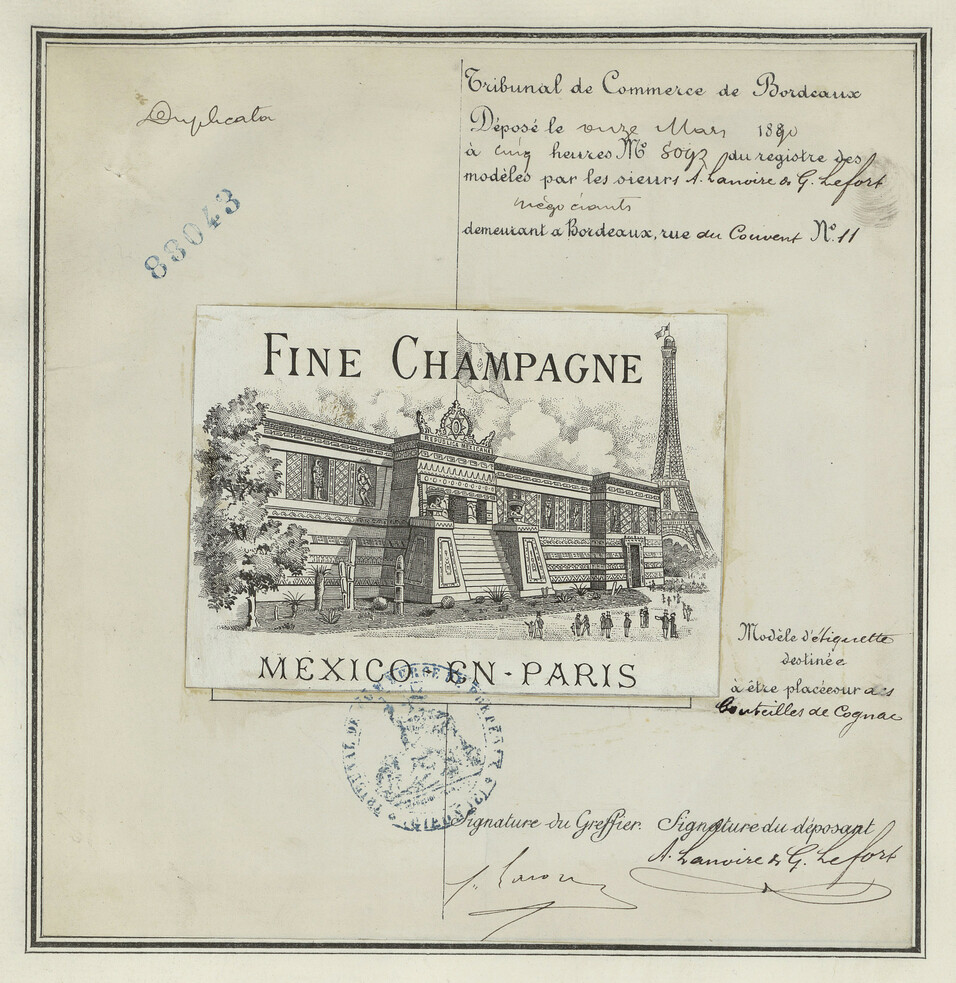 Duplicata
83043
Tribunal de Commerce de Bordeaux
Déposé le onze Mars 1890
à cinq heures No 8093 du registre des
modèles par les sieurs A. Lanoire & G. Lefort
négociants
demeurant a Bordeaux, rue du Couvent No. 11
FINE CHAMPAGNE
REPUBLICA MEXICANA
MEXICO-EN-PARIS
Modèle d'étiquette
destinée
à être placée sur des
bouteilles de Cognac
TRIBUNAL DE COMMERCE DE BORDEAUX
Signature du Greffier. Signature du déposant
A. Lanoire & G. Lefort